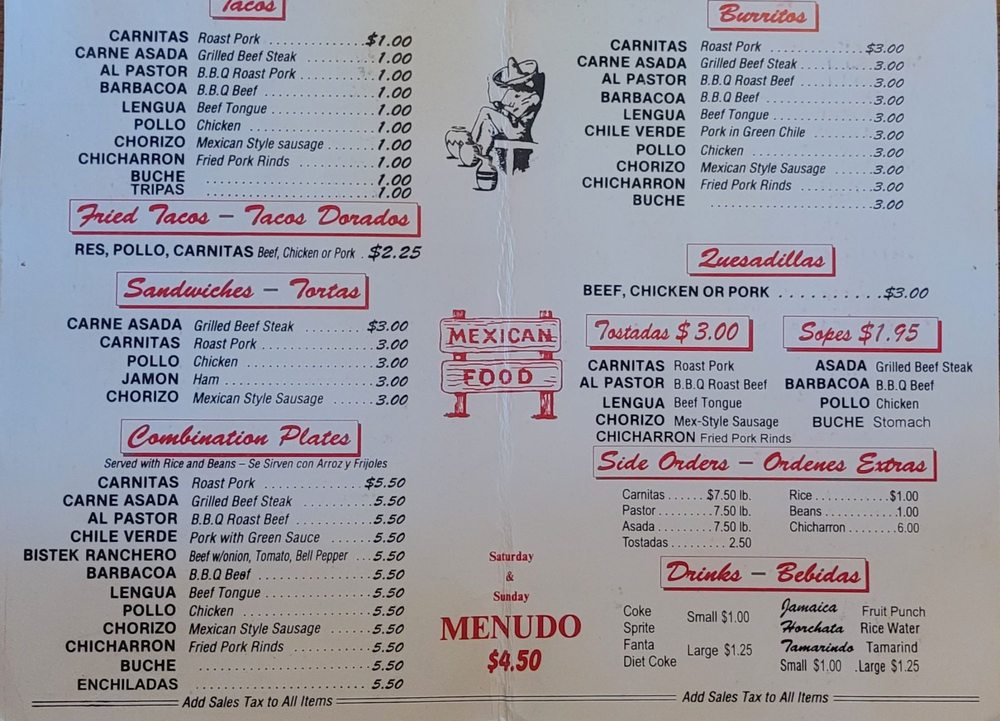 Tacos
CARNITAS Roast Pork ................$1.00
CARNE ASADA Grilled Beef Steak ............1.00
AL PASTOR B.B.Q Roast Pork ............1.00
BARBACOA B.B.Q Beef ..................1.00
LENGUA Beef Tongue ................1.00
POLLO Chicken ....................1.00
CHORIZO Mexican Style sausage .......1.00
CHICHARRON Fried Pork Rinds ............1.00
BUCHE ............................1.00
TRIPAS ............................1.00
Fried Tacos – Tacos Dorados
RES, POLLO, CARNITAS Beef, Chicken or Pork . $2.25
Sandwiches – Tortas
CARNE ASADA Grilled Beef Steak ........ $3.00
CARNITAS Roast Pork ................3.00
POLLO Chicken ....................3.00
JAMON Ham ......................3.00
CHORIZO Mexican Style Sausage ......3.00
Combination Plates
Served with Rice and Beans – Se Sirven con Arroz y Frijoles
CARNITAS Roast Pork ................$5.50
CARNE ASADA Grilled Beef Steak ............5.50
AL PASTOR B.B.Q Roast Beef ............5.50
CHILE VERDE Pork with Green Sauce ......5.50
BISTEK RANCHERO Beef w/onion, Tomato, Bell Pepper ...5.50
BARBACOA B.B.Q Beef ..................5.50
LENGUA Beef Tongue ................5.50
POLLO Chicken ....................5.50
CHORIZO Mexican Style Sausage ......5.50
CHICHARRON Fried Pork Rinds ............5.50
BUCHE ............................5.50
ENCHILADAS ............................5.50
Add Sales Tax to All Items
MEXICAN
FOOD
Saturday
&
Sunday
MENUDO
$4.50
Burritos
CARNITAS Roast Pork ................$3.00
CARNE ASADA Grilled Beef Steak ............3.00
AL PASTOR B.B.Q Roast Beef ............3.00
BARBACOA B.B.Q Beef ..................3.00
LENGUA Beef Tongue ................3.00
CHILE VERDE Pork in Green Chile ..........3.00
POLLO Chicken ....................3.00
CHORIZO Mexican Style Sausage ......3.00
CHICHARRON Fried Pork Rinds ............3.00
BUCHE ............................3.00
Quesadillas
BEEF, CHICKEN OR PORK ..........$3.00
Tostadas $3.00
CARNITAS Roast Pork
AL PASTOR B.B.Q Roast Beef
LENGUA Beef Tongue
CHORIZO Mex-Style Sausage
CHICHARRON Fried Pork Rinds
Sopes $1.95
ASADA Grilled Beef Steak
BARBACOA B.B.Q Beef
POLLO Chicken
BUCHE Stomach
Side Orders – Ordenes Extras
Carnitas ...... $7.50 lb.
Pastor ......... 7.50 lb.
Asada ......... 7.50 lb.
Tostadas ......... 2.50
Rice ............ $1.00
Beans ............ 1.00
Chicharron ........ 6.00
Drinks – Bebidas
Coke
Sprite
Fanta
Diet Coke
Small $1.00
Large $1.25
Jamaica Fruit Punch
Horchata Rice Water
Tamarindo Tamarind
Small $1.00 .Large $1.25
Add Sales Tax to All Items